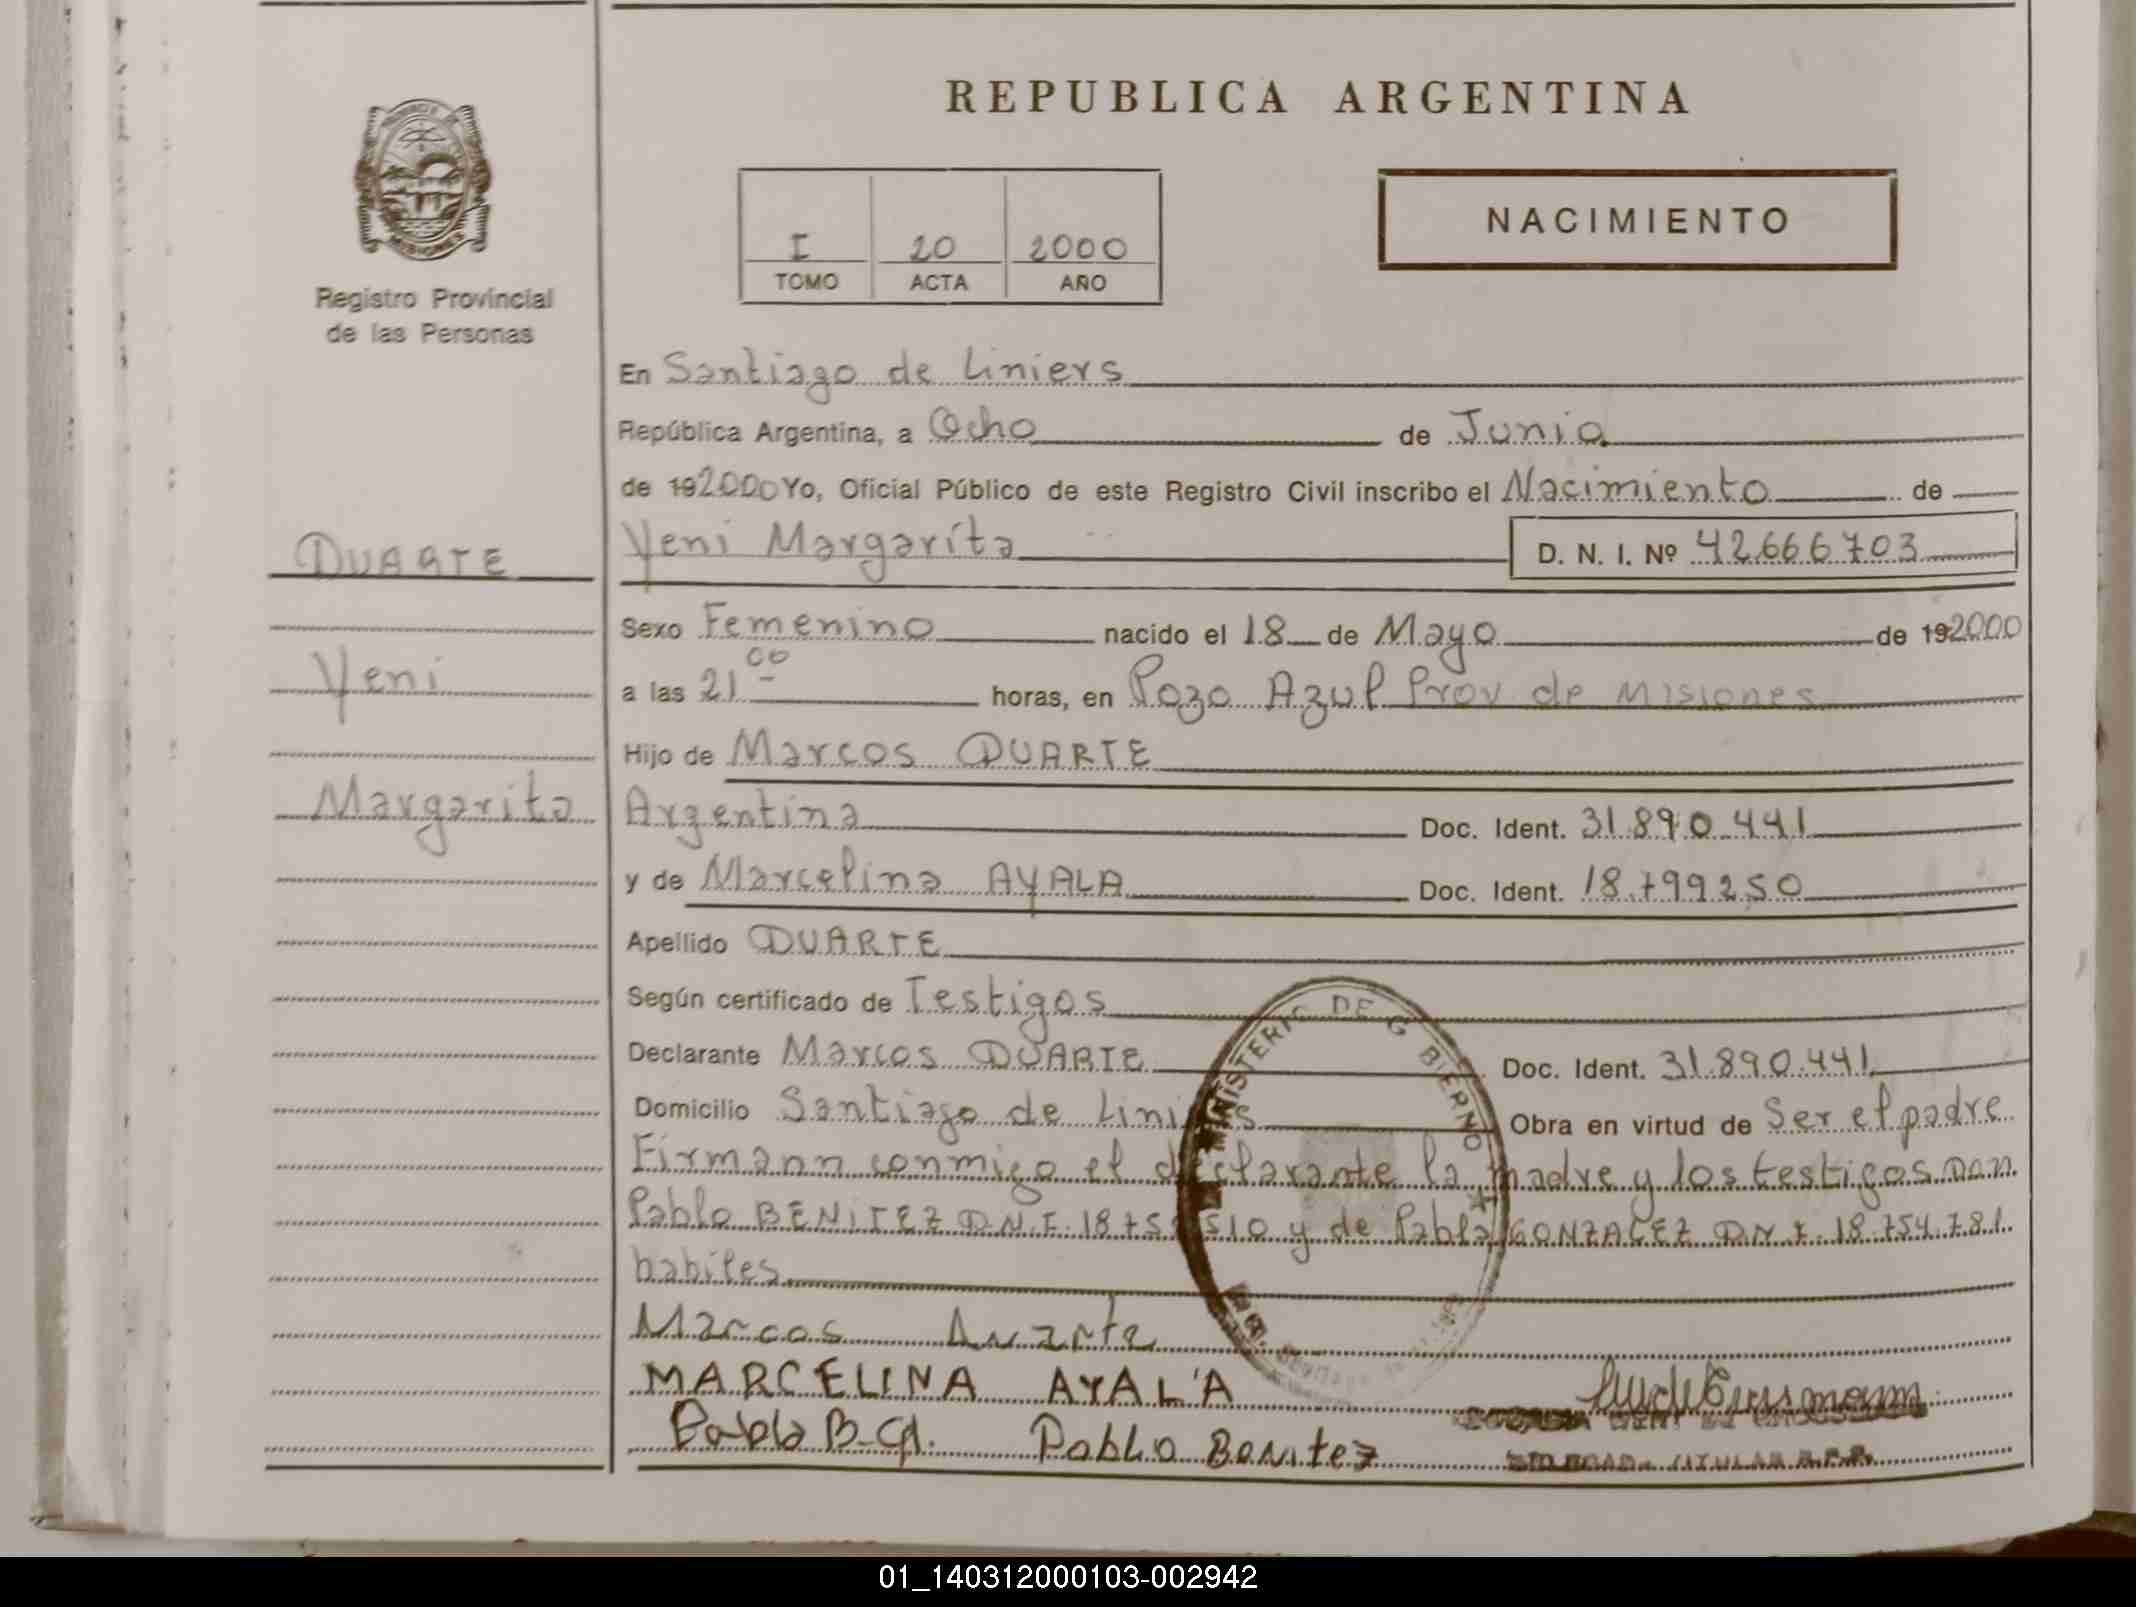 REPUBLICA ARGENTINA
NACIMIENTO
I 20 2000
TOMO ACTA AÑO
Registro Provincial
de las Personas
En Santiago de Liniers
República Argentina, a Ocho de Junio
de 192000 Yo, Oficial Público de este Registro Civil inscribo el Nacimiento de
DUARTE
Yeni Margarita D. N. I. Nº 42.666.703
Sexo Femenino nacido el 18 de Mayo de 192000
Yeni
a las 21 00 horas, en Pozo Azul Prov de Misiones
Hijo de Marcos DUARTE
Margarita
Argentina Doc. Ident. 31.890.441
y de Marcelina AYALA Doc. Ident. 18.799250
Apellido DUARTE
Según certificado de Testigos
Declarante Marcos DUARTE Doc. Ident. 31.890.441
Domicilio Santiago de Liniers Obra en virtud de Ser el padre
Firmann conmigo el declarante la madre y los testigos
Pablo BENITEZ D.N.I. y de Pablo GONZALEZ D.N.I. 18.754.781
habiles
MINISTERIO DE G BIERNO
Marcos Duarte
MARCELINA AYAL'A
Pablo Benitez
01_140312000103-002942